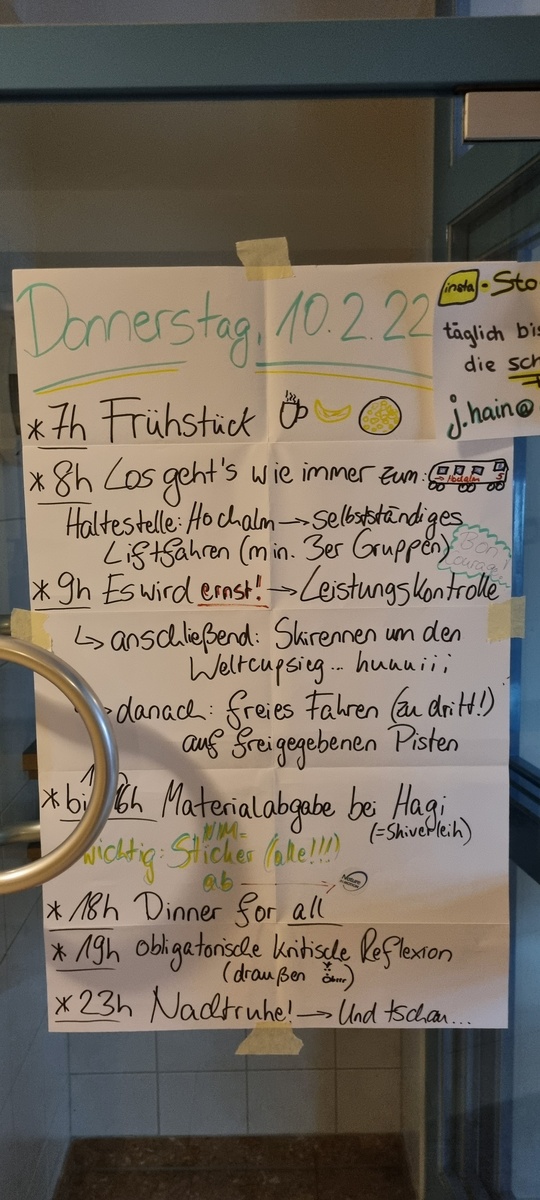 Donnerstag, 10.2.22
insta - Sto
täglich bis
die sch
j.hain@
* 7h Frühstück
* 8h Los geht's wie immer zum:
Haltestelle: Hochalm → selbstständiges
Liftfahren (min. 3er Gruppen)
Bon
courage!
* 9h Es wird ernst! → Leistungskontrolle
↳ anschließend: Skirennen um den
Weltcupsieg... huuuiii
danach: freies Fahren (zu dritt!)
auf freigegebenen Pisten
* bi 16h Materialabgabe bei Hagi
(=Skiverleih)
wichtig: Sticker (alle!!!)
ab
* 18h Dinner for all
* 19h obligatorische kritische Reflexion
(draußen)
* 23h Nachtruhe! → Und tschau...